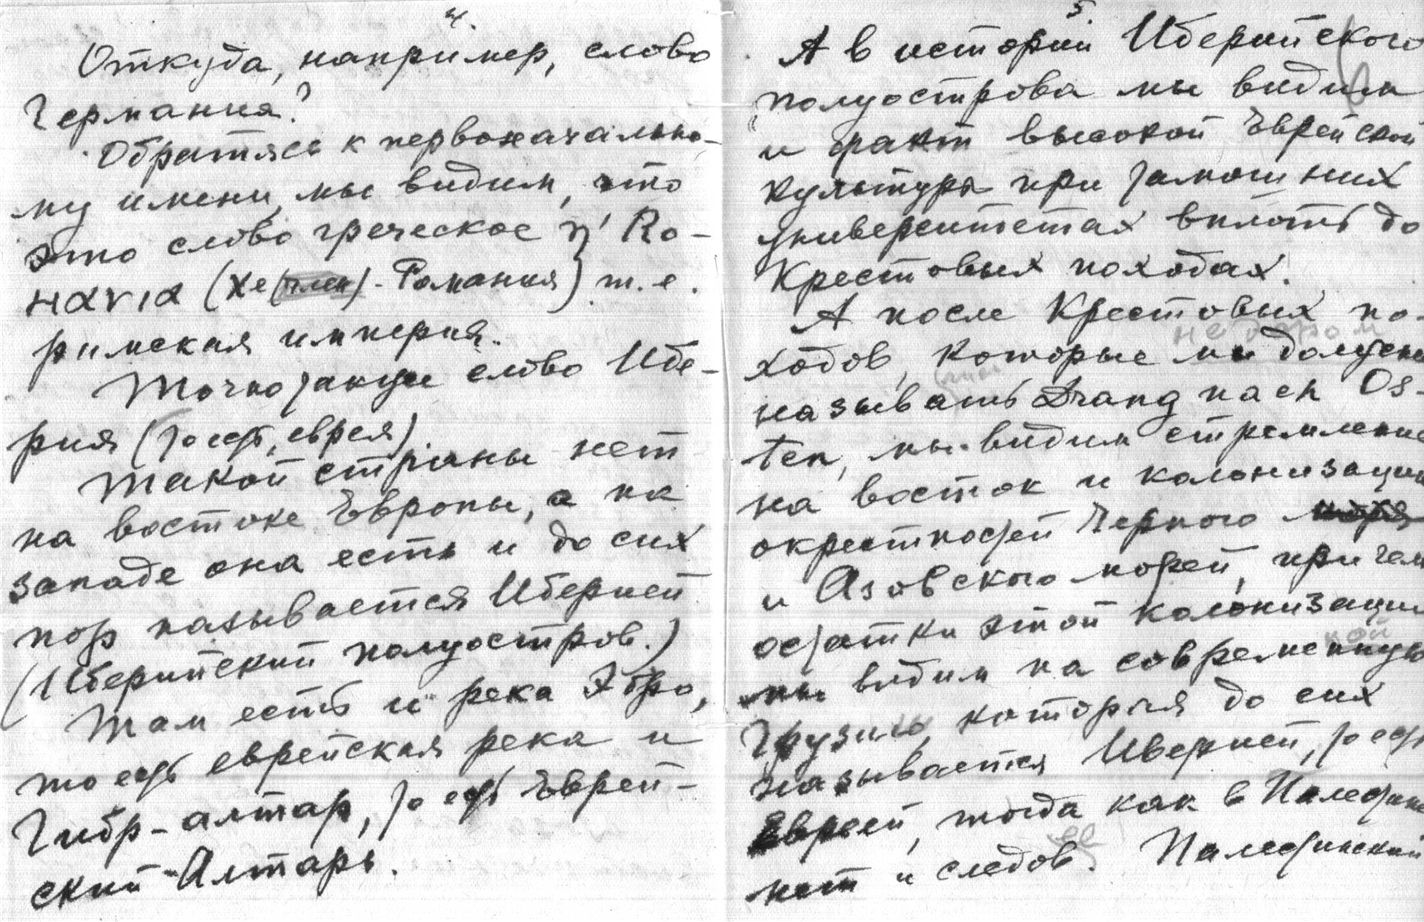 4.
Откуда, например, слово
Германия?
Обратясь к первоначально-
му имени, мы видим, что
это слово греческое η' Ρο-
μανια (Хе(член)-Романия) т.е.
римская империя.
Точно также слово Ибе-
рия (то есть, еврея).
Такой страны нет
на востоке Европы, а на
западе она есть и до сих
пор называется Иберией
(Иберийский полуостров.)
Там есть и река Эбро,
то есть еврейская река и
Гибр-алтар, то есть Еврей-
ский Алтарь.
5.
А в истории Иберийского
полуострова мы видим
и факт высокой Еврейской
культуры при тамошних
университетах вплоть до
Крестовых походах.
А после Крестовых по-
недаром
ходов, которые мы должны
называть Drang nach Os-
ten, мы видим стремление
на восток и колонизации
окрестностей Черного моря
и Азовского морей, при чем
остатки этой колонизации
кой
мы видим на современную
Грузию, которая до сих
называется Иверией, то есть
Евреей, тогда как в Палестине
ее
нет и следов. Палестинский